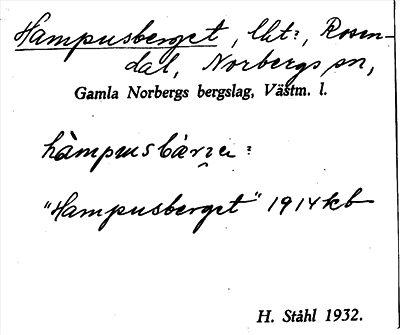 Hampusberget, lht:, Rosen-
dal, Norbergs sn,
Gamla Norbergs bergslag, Västm. l.
"Hampusberget" 1914 kb
H. Ståhl 1932.